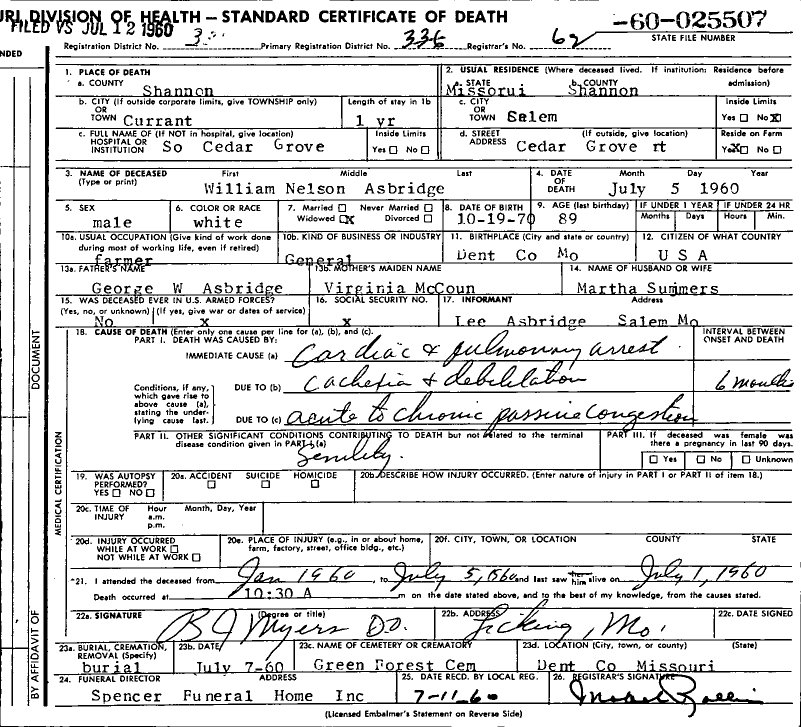 URI DIVISION OF HEALTH — STANDARD CERTIFICATE OF DEATH
-60-025507
FILED VS JUL 12 1960
STATE FILE NUMBER
Registration District No. Primary Registration District No. 336 Registrar's No. 62
NDED
1. PLACE OF DEATH
a. COUNTY Shannon
2. USUAL RESIDENCE (Where deceased lived. If institution: Residence before admission)
a. STATE Missorui b. COUNTY Shannon
b. CITY (If outside corporate limits, give TOWNSHIP only) OR TOWN Currant
Length of stay in 1b 1 yr
c. CITY OR TOWN Salem
Inside Limits Yes ☐ No ☒
c. FULL NAME OF (If NOT in hospital, give location) HOSPITAL OR INSTITUTION So Cedar Grove
Inside Limits Yes ☐ No ☐
d. STREET ADDRESS (If outside, give location) Cedar Grove rt
Reside on Farm Yes ☒ No ☐
3. NAME OF DECEASED (Type or print) First Middle Last
William Nelson Asbridge
4. DATE OF DEATH Month Day Year
July 5 1960
5. SEX male
6. COLOR OR RACE white
7. Married ☐ Never Married ☐ Widowed ☒ Divorced ☐
8. DATE OF BIRTH 10-19-70
9. AGE (last birthday) 89
IF UNDER 1 YEAR Months Days
IF UNDER 24 HR Hours Min.
10a. USUAL OCCUPATION (Give kind of work done during most of working life, even if retired) farmer
10b. KIND OF BUSINESS OR INDUSTRY General
11. BIRTHPLACE (City and state or country) Dent Co Mo
12. CITIZEN OF WHAT COUNTRY U S A
13a. FATHER'S NAME George W Asbridge
13b. MOTHER'S MAIDEN NAME Virginia McCoun
14. NAME OF HUSBAND OR WIFE Martha Summers
15. WAS DECEASED EVER IN U.S. ARMED FORCES? (Yes, no, or unknown) (If yes, give war or dates of service) No x
16. SOCIAL SECURITY NO. x
17. INFORMANT Address
Lee Asbridge Salem Mo
18. CAUSE OF DEATH (Enter only one cause per line for (a), (b), and (c).
INTERVAL BETWEEN ONSET AND DEATH
PART I. DEATH WAS CAUSED BY:
IMMEDIATE CAUSE (a) Cardiac & pulmonary arrest
Conditions, if any, which gave rise to above cause (a), stating the underlying cause last.
DUE TO (b) Cachexia & debilitation 6 months
DUE TO (c) acute to chronic passive congestion
PART II. OTHER SIGNIFICANT CONDITIONS CONTRIBUTING TO DEATH but not related to the terminal disease condition given in PART I (a)
Senility.
PART III. If deceased was female was there a pregnancy in last 90 days.
☐ Yes ☐ No ☐ Unknown
19. WAS AUTOPSY PERFORMED? YES ☐ NO ☐
20a. ACCIDENT ☐ SUICIDE ☐ HOMICIDE ☐
20b. DESCRIBE HOW INJURY OCCURRED. (Enter nature of injury in PART I or PART II of item 18.)
20c. TIME OF INJURY Hour a.m. p.m. Month, Day, Year
20d. INJURY OCCURRED WHILE AT WORK ☐ NOT WHILE AT WORK ☐
20e. PLACE OF INJURY (e.g., in or about home, farm, factory, street, office bldg., etc.)
20f. CITY, TOWN, OR LOCATION COUNTY STATE
21. I attended the deceased from Jan 1960, to July 5, 1960 and last saw her him alive on July 1, 1960
Death occurred at 10:30 A m on the date stated above, and to the best of my knowledge, from the causes stated.
22a. SIGNATURE (Degree or title) B J Myers D.O.
22b. ADDRESS Licking, Mo.
22c. DATE SIGNED
23a. BURIAL, CREMATION, REMOVAL (Specify) burial
23b. DATE July 7-60
23c. NAME OF CEMETERY OR CREMATORY Green Forest Cem
23d. LOCATION (City, town, or county) (State) Dent Co Missouri
24. FUNERAL DIRECTOR ADDRESS
Spencer Funeral Home Inc
25. DATE RECD. BY LOCAL REG. 7-11-60
26. REGISTRAR'S SIGNATURE
(Licensed Embalmer's Statement on Reverse Side)
DOCUMENT
MEDICAL CERTIFICATION
BY AFFIDAVIT OF